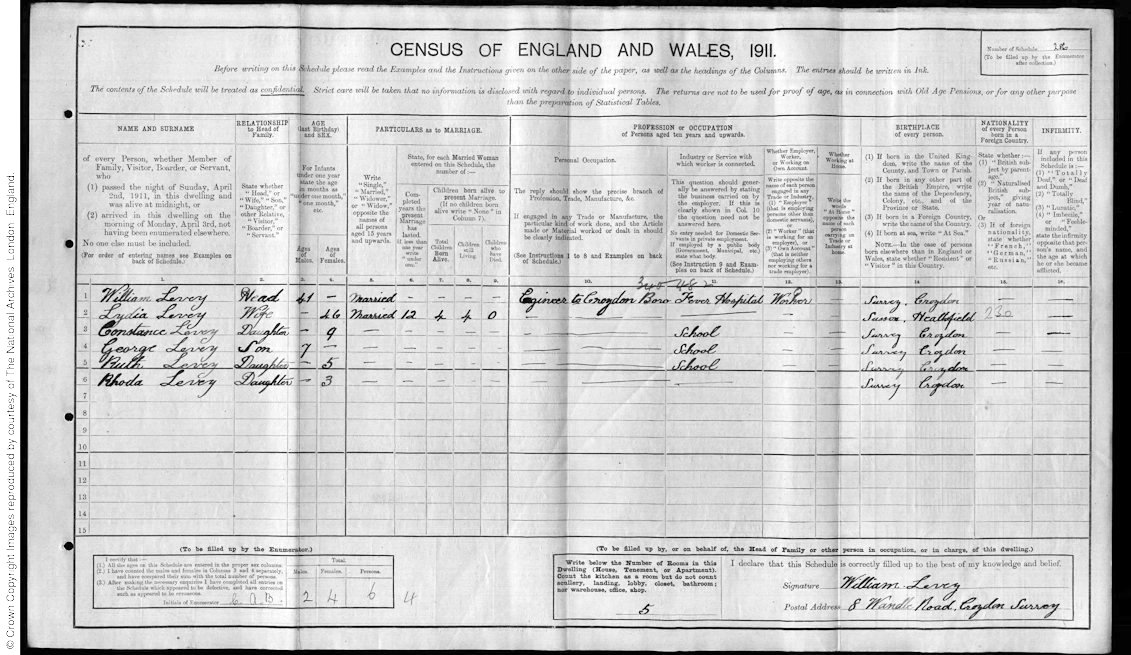 CENSUS OF ENGLAND AND WALES, 1911.
Number of Schedule 26
(To be filled up by the Enumerator after collection.)
Before writing on this Schedule please read the Examples and the Instructions given on the other side of the paper, as well as the headings of the Columns. The entries should be written in Ink.
The contents of the Schedule will be treated as confidential. Strict care will be taken that no information is disclosed with regard to individual persons. The returns are not to be used for proof of age, as in connection with Old Age Pensions, or for any other purpose
than the preparation of Statistical Tables.
NAME AND SURNAME
of every Person, whether Member of Family, Visitor, Boarder, or Servant, who
(1) passed the night of Sunday, April 2nd, 1911, in this dwelling and was alive at midnight, or
(2) arrived in this dwelling on the morning of Monday, April 3rd, not having been enumerated elsewhere.
No one else must be included.
(For order of entering names see Examples on back of Schedule.)
RELATIONSHIP to Head of Family.
State whether "Head," or "Wife," "Son," "Daughter," or other Relative, "Visitor," "Boarder," or "Servant."
AGE (last Birthday) and SEX.
For Infants under one year state the age in months as "under one month," "one month," etc.
Ages of Males.
Ages of Females.
PARTICULARS as to MARRIAGE.
Write "Single," "Married," "Widower," or "Widow," opposite the names of all persons aged 15 years and upwards.
State, for each Married Woman entered on this Schedule, the number of :—
Completed years the present Marriage has lasted. If less than one year write "under one."
Children born alive to present Marriage. (If no children born alive write "None" in Column 7).
Total Children Born Alive.
Children still Living.
Children who have Died.
PROFESSION or OCCUPATION
of Persons aged ten years and upwards.
Personal Occupation.
The reply should show the precise branch of Profession, Trade, Manufacture, &c.
If engaged in any Trade or Manufacture, the particular kind of work done, and the Article made or Material worked or dealt in should be clearly indicated.
(See Instructions 1 to 8 and Examples on back of Schedule.)
Industry or Service with which worker is connected.
This question should generally be answered by stating the business carried on by the employer. If this is clearly shown in Col. 10 the question need not be answered here.
No entry needed for Domestic Servants in private employment.
If employed by a public body (Government, Municipal, etc.) state what body.
(See Instruction 9 and Examples on back of Schedule.)
Whether Employer, Worker, or Working on Own Account.
Write opposite the name of each person engaged in any Trade or Industry, (1) "Employer" (that is employing persons other than domestic servants), or (2) "Worker" (that is working for an employer), or (3) "Own Account" (that is neither employing others nor working for a trade employer).
Whether Working at Home.
Write the words "At Home" opposite the name of each person carrying on Trade or Industry at home.
BIRTHPLACE
of every person.
(1) If born in the United Kingdom, write the name of the County, and Town or Parish.
(2) If born in any other part of the British Empire, write the name of the Dependency, Colony, etc., and of the Province or State.
(3) If born in a Foreign Country, write the name of the Country.
(4) If born at sea, write "At Sea."
NOTE.—In the case of persons born elsewhere than in England or Wales, state whether "Resident" or "Visitor" in this Country.
NATIONALITY of every Person born in a Foreign Country.
State whether :—
(1) "British subject by parentage,"
(2) "Naturalised British subject," giving year of naturalisation.
Or
(3) If of foreign nationality, state whether "French," "German," "Russian," etc.
INFIRMITY.
If any person included in this Schedule is :—
(1) "Totally Deaf," or "Deaf and Dumb,"
(2) "Totally Blind,"
(3) "Lunatic,"
(4) "Imbecile," or "Feeble-minded,"
state the infirmity opposite that person's name, and the age at which he or she became afflicted.
1. 2. 3. 4. 5. 6. 7. 8. 9. 10. 11. 12. 13. 14. 15. 16.
1 William Levey Head 41 — Married — — — — Egineer to Croydon Boro Fever Hospital Worker — Surrey, Croydon — —
2 Lydia Levey Wife — 46 Married 12 4 4 0 — — — — Sussex, Heathfield 230 —
3 Constance Levey Daughter — 9 — — — — — — School — — Surrey Croydon — —
4 George Levey Son 7 — — — — — — — School — — Surrey Croydon — —
5 Ruth Levey Daughter — 5 — — — — — — School — — Surrey Croydon — —
6 Rhoda Levey Daughter — 3 — — — — — — — — Surrey Croydon — —
7
8
9
10
11
12
13
14
15
(To be filled up by the Enumerator.)
I certify that :—
(1.) All the ages on this Schedule are entered in the proper sex columns.
(2.) I have counted the males and females in Columns 3 and 4 separately, and have compared their sum with the total number of persons.
(3.) After making the necessary enquiries I have completed all entries on the Schedule which appeared to be defective, and have corrected such as appeared to be erroneous.
Initials of Enumerator
Total.
Males. Females. Persons.
2 4 6 4
(To be filled up by, or on behalf of, the Head of Family or other person in occupation, or in charge, of this dwelling.)
Write below the Number of Rooms in this Dwelling (House, Tenement, or Apartment). Count the kitchen as a room but do not count scullery, landing, lobby, closet, bathroom; nor warehouse, office, shop.
5
I declare that this Schedule is correctly filled up to the best of my knowledge and belief.
Signature William Levey
Postal Address 8 Wandle Road, Croydon Surrey
© Crown Copyright Images reproduced by courtesy of The National Archives, London, England.